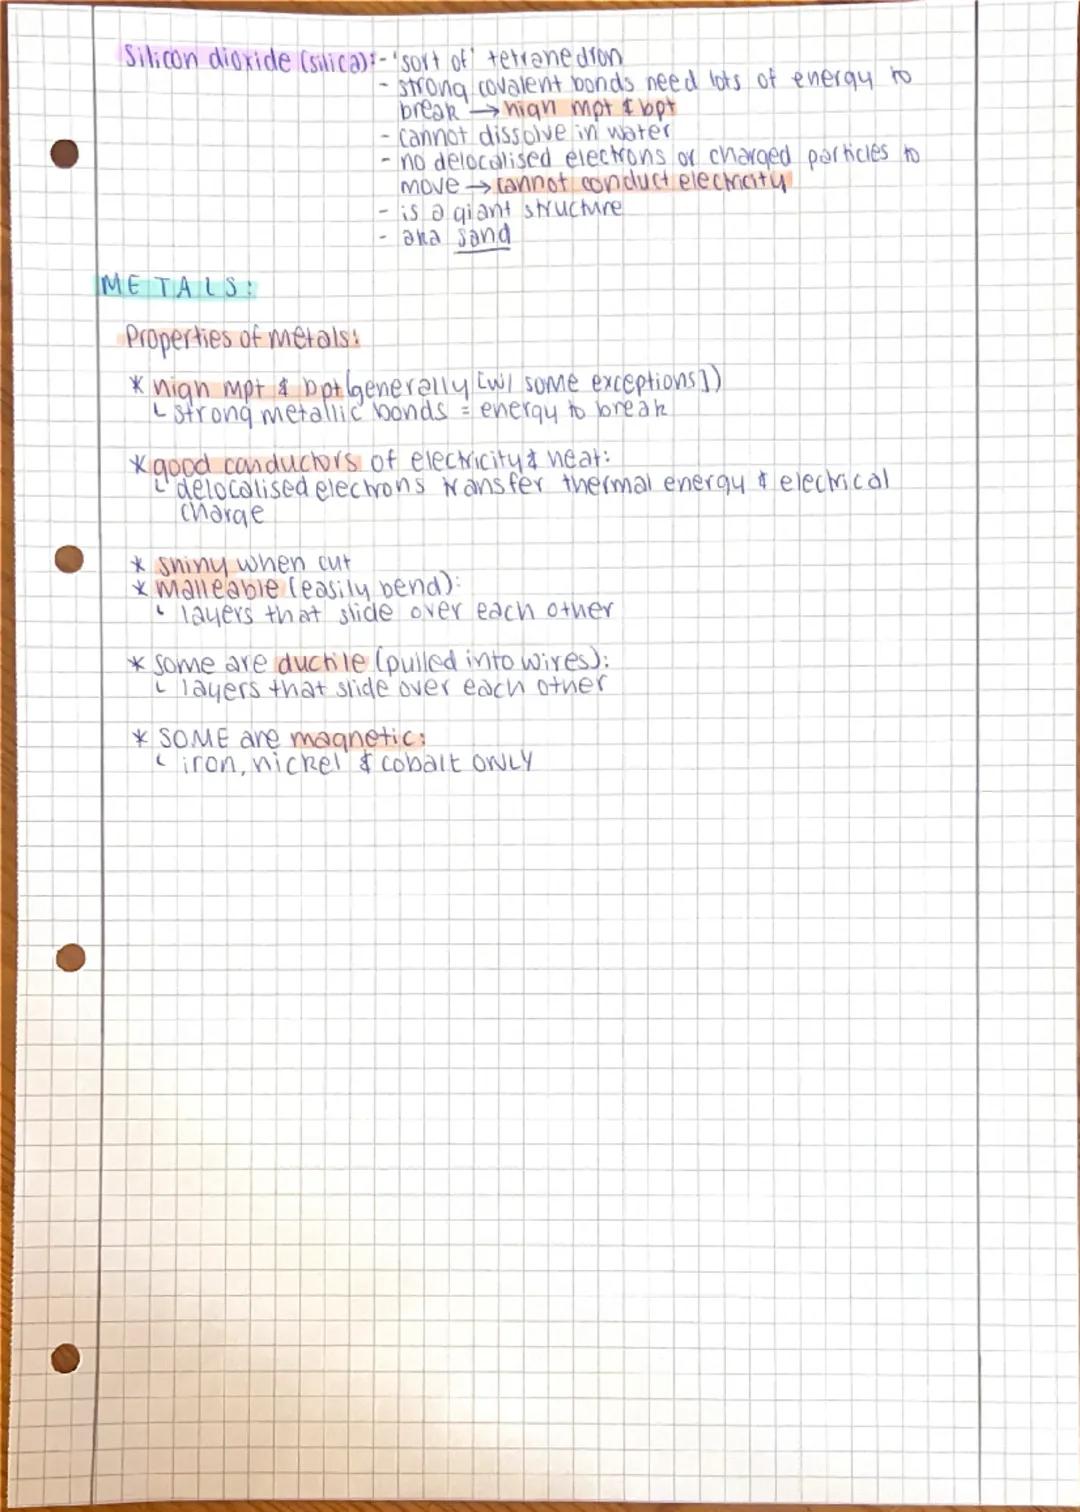 Silicon dioxide (silica):- 'sort of' tetrahedron
- strong covalent bonds need lots of energy to
break → high mpt & bpt
- cannot dissolve in water
- no delocalised electrons or charged particles to
move → cannot conduct electricity
- is a giant structure
- aka sand
METALS:
Properties of metals:
* high mpt & bpt (generally [w/ some exceptions])
└ strong metallic bonds = energy to break
* good conductors of electricity & heat:
└ delocalised electrons transfer thermal energy & electrical
charge
* shiny when cut
* malleable (easily bend):
└ layers that slide over each other
* some are ductile (pulled into wires):
└ layers that slide over each other
* SOME are magnetic:
└ iron, nickel & cobalt ONLY